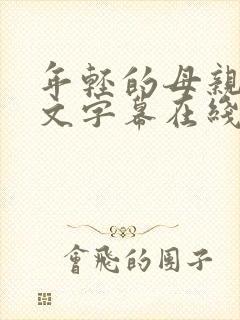 年輕的母親
文字幕在綫
會飛的團子